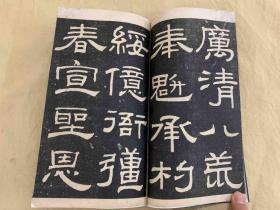 厲清八荒
奉魁承杓
綏億衙彊
春宣聖恩